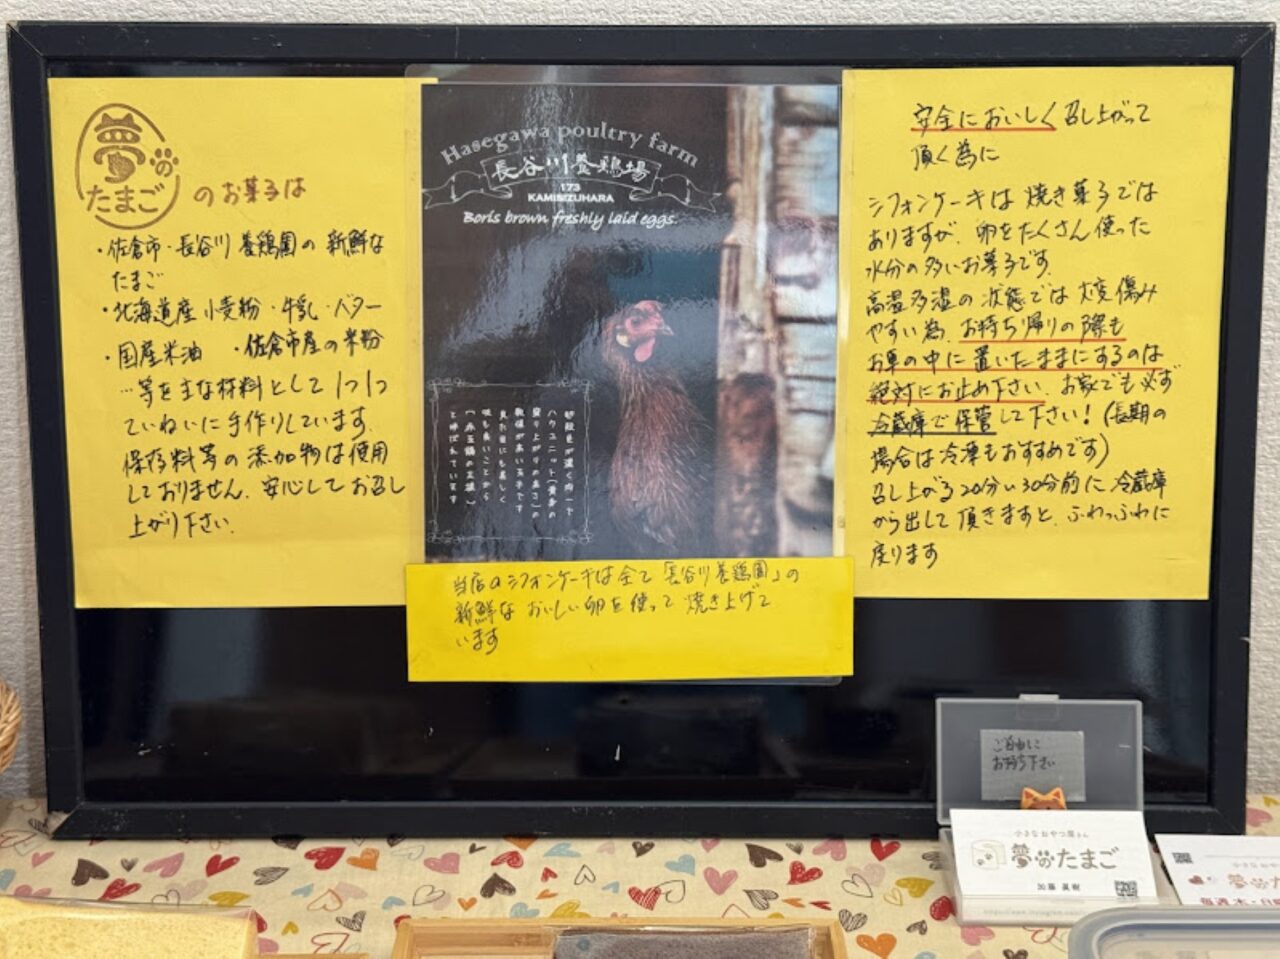 夢の
たまご のお菓子は
・佐倉市・長谷川養鶏園の新鮮な
たまご
・北海道産小麦粉・牛乳・バター
・国産米油 ・佐倉市産の米粉
…等を主な材料として1つ1つ
ていねいに手作りしています。
保存料等の添加物は使用
しておりません。安心してお召し
上がり下さい。
Hasegawa poultry farm
長谷川養鶏場
173
KAMISIZUHARA
Boris brown freshly laid eggs.
当店のシフォンケーキは全て「長谷川養鶏園」の
新鮮なおいしい卵を使って焼き上げて
います
安全においしく召し上がって
頂く為に
シフォンケーキは焼き菓子では
ありますが、卵をたくさん使った
水分の多いお菓子です。
高温多湿の状態では大変傷み
やすい為、お持ち帰りの際も
お車の中に置いたままにするのは
絶対にお止め下さい。お家でも必ず
冷蔵庫で保管して下さい!(長期の
場合は冷凍もおすすめです)
召し上がる20分~30分前に冷蔵庫
から出して頂きますと、ふわっふわに
戻ります
ご自由に
お持ち下さい
小さなおやつ屋さん
夢のたまご
加藤 真樹